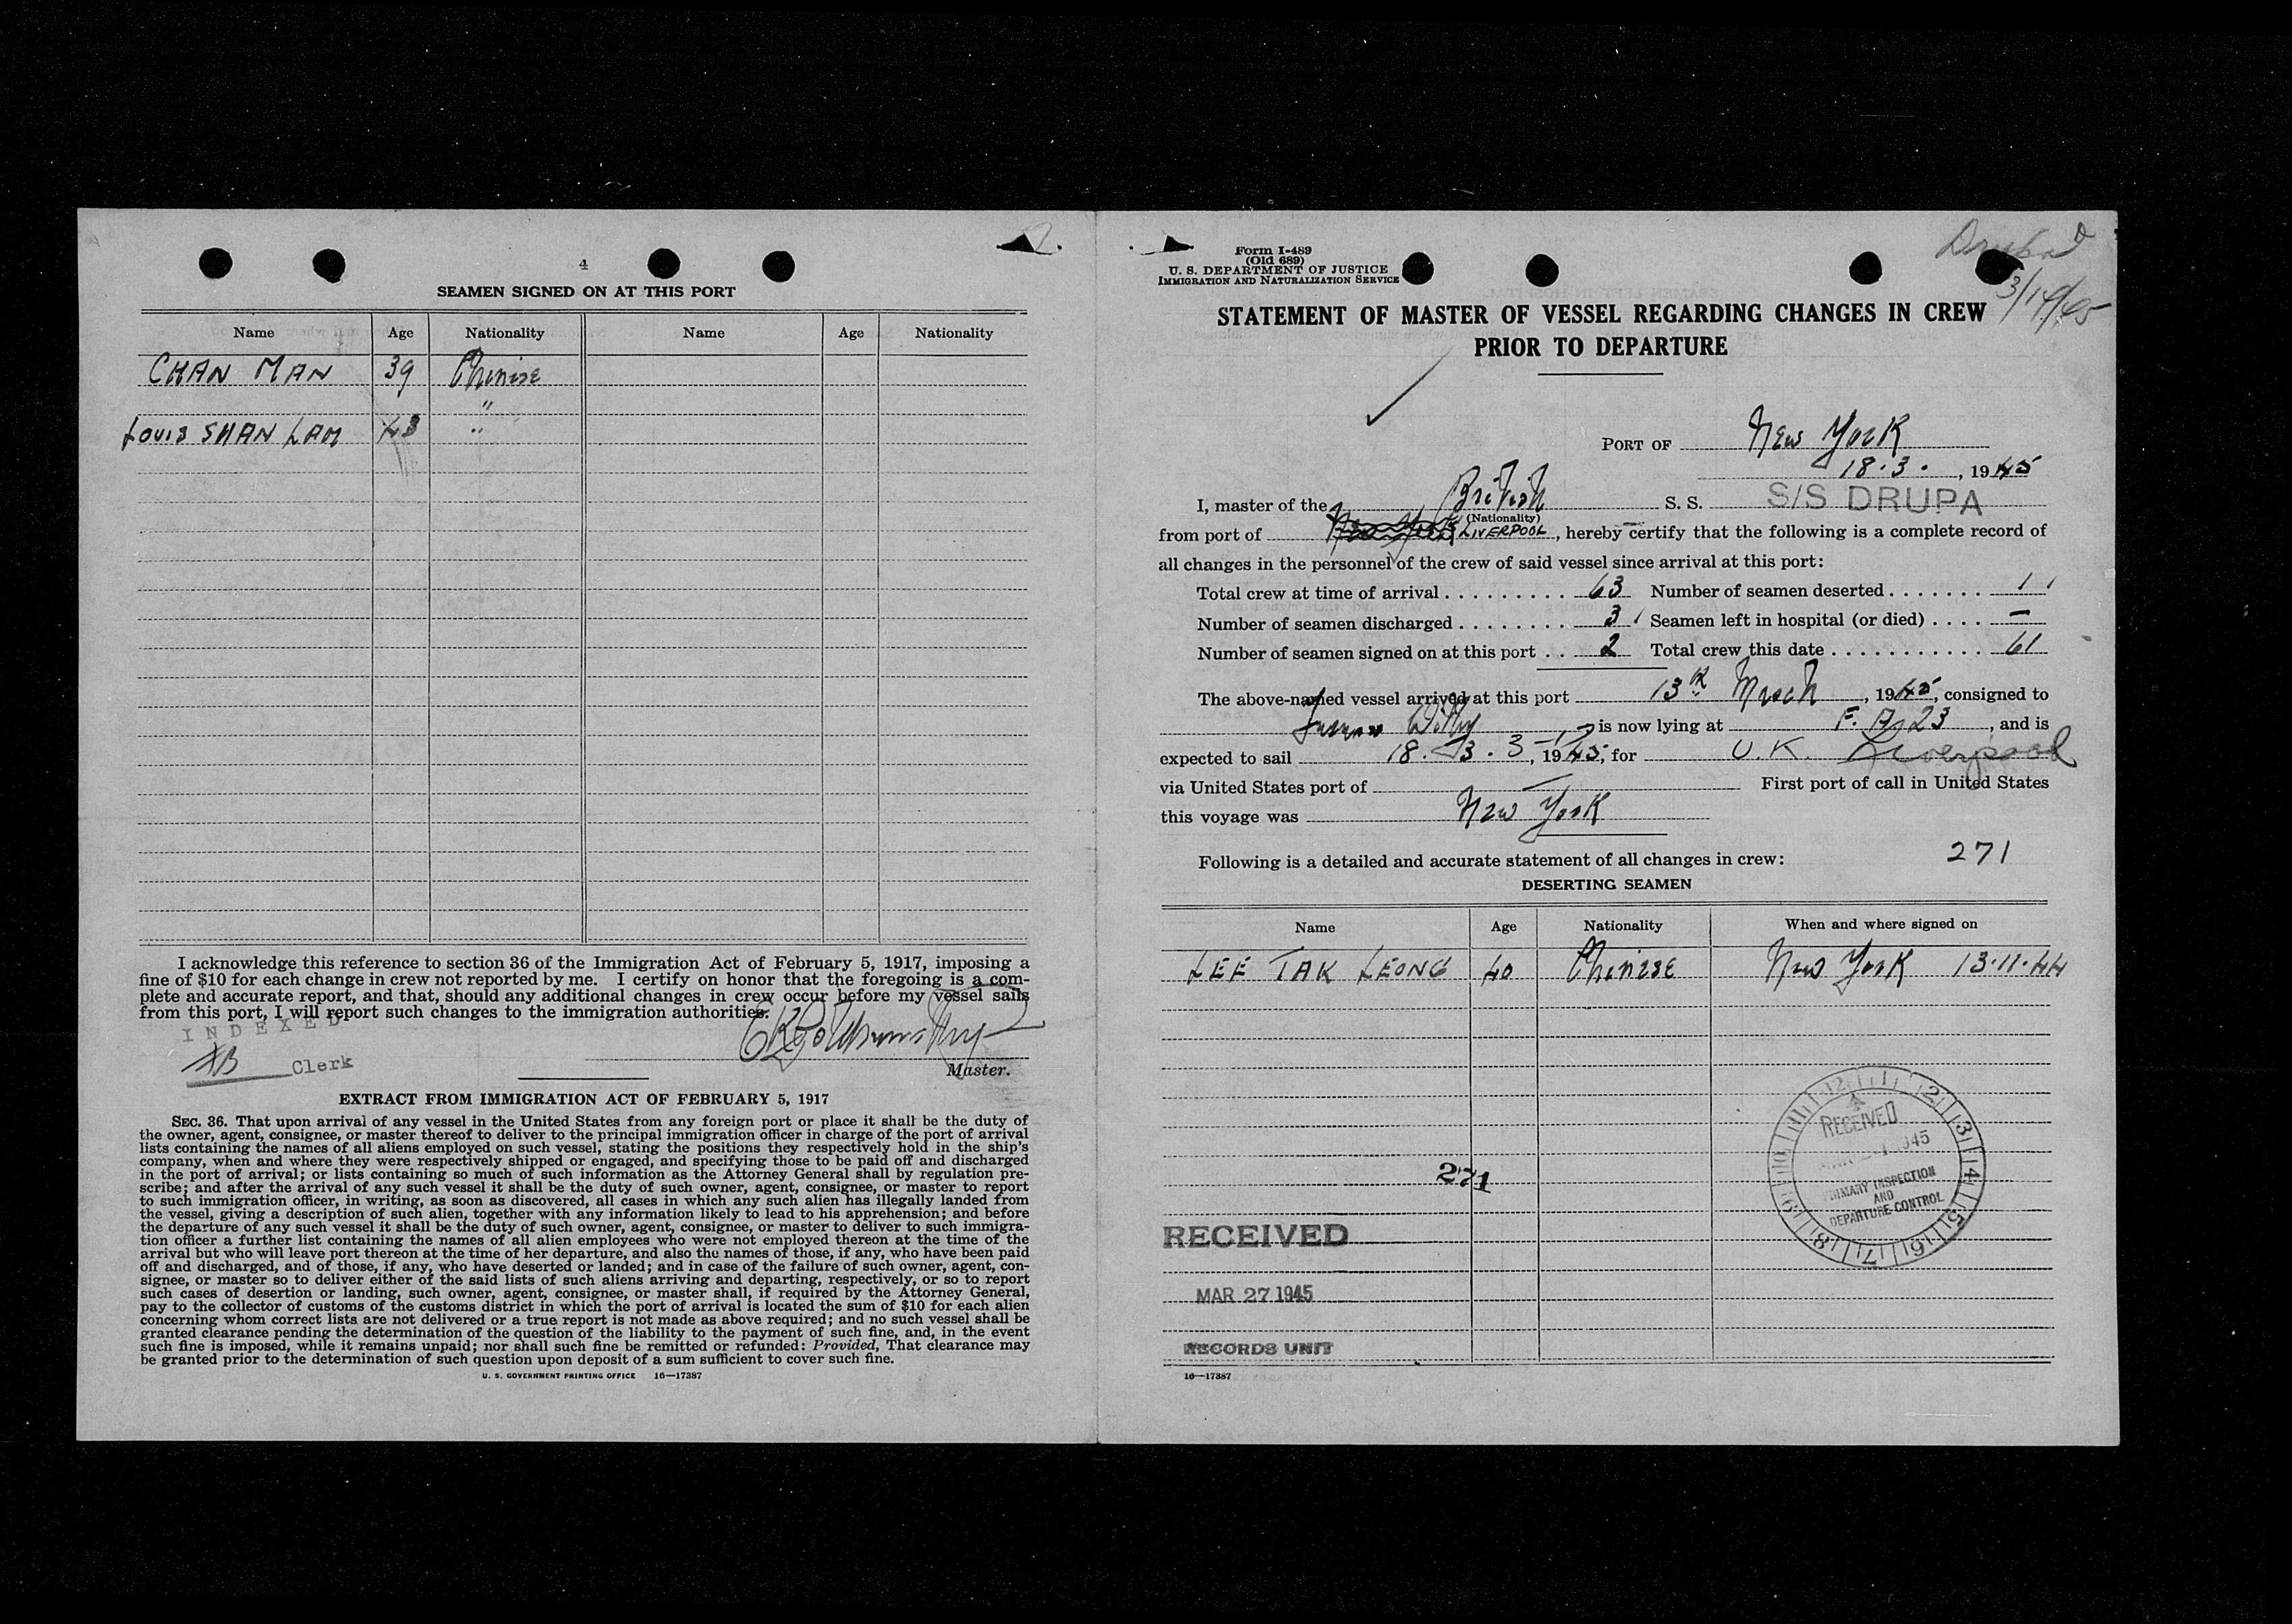 4
SEAMEN SIGNED ON AT THIS PORT
Name Age Nationality Name Age Nationality
CHAN MAN 39 Chinise
"
LOUIS SHAN LAM 43 "
I acknowledge this reference to section 36 of the Immigration Act of February 5, 1917, imposing a
fine of $10 for each change in crew not reported by me. I certify on honor that the foregoing is a com-
plete and accurate report, and that, should any additional changes in crew occur before my vessel sails
from this port, I will report such changes to the immigration authorities.
INDEXED
Clerk
Master.
EXTRACT FROM IMMIGRATION ACT OF FEBRUARY 5, 1917
SEC. 36. That upon arrival of any vessel in the United States from any foreign port or place it shall be the duty of
the owner, agent, consignee, or master thereof to deliver to the principal immigration officer in charge of the port of arrival
lists containing the names of all aliens employed on such vessel, stating the positions they respectively hold in the ship's
company, when and where they were respectively shipped or engaged, and specifying those to be paid off and discharged
in the port of arrival; or lists containing so much of such information as the Attorney General shall by regulation pre-
scribe; and after the arrival of any such vessel it shall be the duty of such owner, agent, consignee, or master to report
to such immigration officer, in writing, as soon as discovered, all cases in which any such alien has illegally landed from
the vessel, giving a description of such alien, together with any information likely to lead to his apprehension; and before
the departure of any such vessel it shall be the duty of such owner, agent, consignee, or master to deliver to such immigra-
tion officer a further list containing the names of all alien employees who were not employed thereon at the time of the
arrival but who will leave port thereon at the time of her departure, and also the names of those, if any, who have been paid
off and discharged, and of those, if any, who have deserted or landed; and in case of the failure of such owner, agent, con-
signee, or master so to deliver either of the said lists of such aliens arriving and departing, respectively, or so to report
such cases of desertion or landing, such owner, agent, consignee, or master shall, if required by the Attorney General,
pay to the collector of customs of the customs district in which the port of arrival is located the sum of $10 for each alien
concerning whom correct lists are not delivered or a true report is not made as above required; and no such vessel shall be
granted clearance pending the determination of the question of the liability to the payment of such fine, and, in the event
such fine is imposed, while it remains unpaid; nor shall such fine be remitted or refunded: Provided, That clearance may
be granted prior to the determination of such question upon deposit of a sum sufficient to cover such fine.
U. S. GOVERNMENT PRINTING OFFICE 16—17387
Form I-489
(Old 689)
U. S. DEPARTMENT OF JUSTICE
IMMIGRATION AND NATURALIZATION SERVICE
STATEMENT OF MASTER OF VESSEL REGARDING CHANGES IN CREW
PRIOR TO DEPARTURE
PORT OF New York
18.3. , 1945
I, master of the British S. S. S/S DRUPA
(Nationality)
from port of LIVERPOOL, hereby certify that the following is a complete record of
all changes in the personnel of the crew of said vessel since arrival at this port:
Total crew at time of arrival 63 Number of seamen deserted 1
Number of seamen discharged 3 Seamen left in hospital (or died) —
Number of seamen signed on at this port 2 Total crew this date 61
The above-named vessel arrived at this port 13th March, 1945, consigned to
is now lying at F. A. 23, and is
expected to sail 18. 3, 1945, for U.K. Liverpool
via United States port of — First port of call in United States
this voyage was New York
Following is a detailed and accurate statement of all changes in crew: 271
DESERTING SEAMEN
Name Age Nationality When and where signed on
LEE TAK LEONG 40 Chinise New York 13.11.44
RECEIVED
1945
PRIMARY INSPECTION
AND
DEPARTURE CONTROL
271
RECEIVED
MAR 27 1945
RECORDS UNIT
16—17387